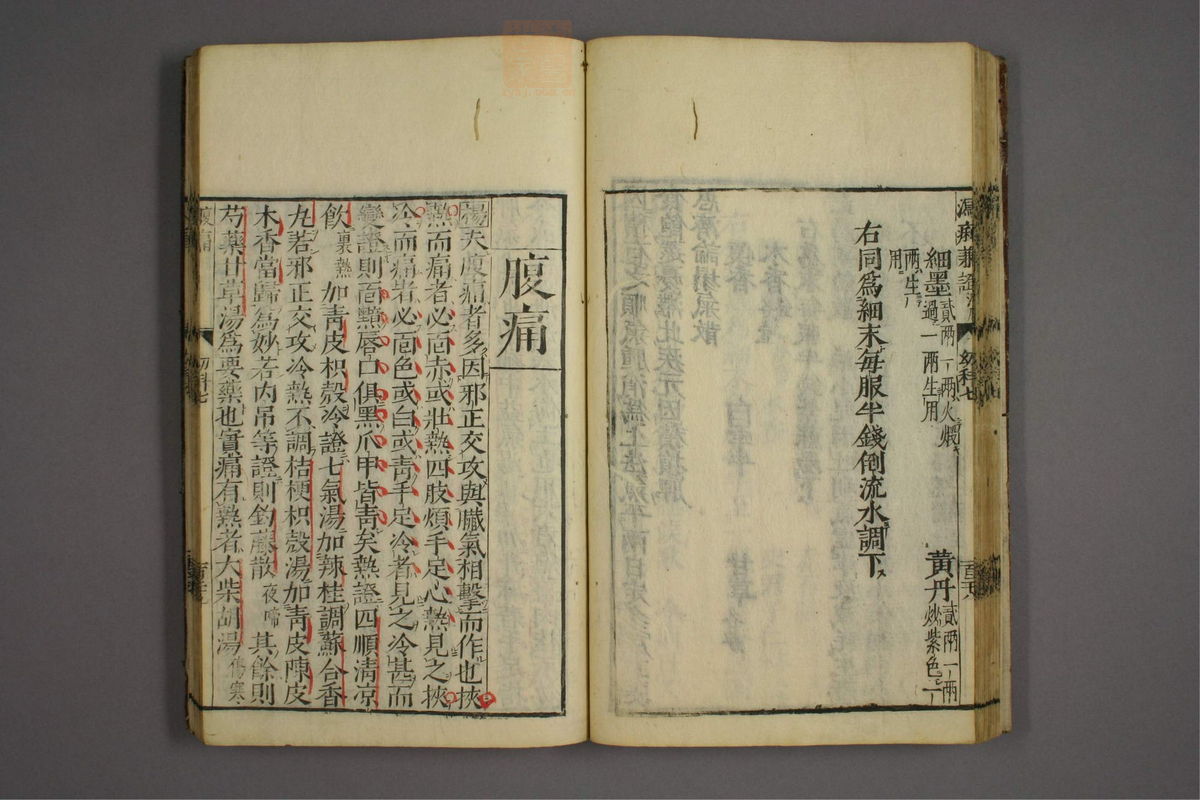 細墨貳兩一兩火煅過一兩生用
黃丹貳兩一兩炒紫色一
兩生用
右同爲細末每服半錢倒流水調下
腹痛
楊夫腹痛者多因邪正交攻與臟氣相擊而作也挾
熱而痛者必面赤或壯熱四肢煩手足心熱見之挾
冷而痛者必面色或白或青手足冷者見之冷甚而
變證則面黯唇口俱黑爪甲皆青矣熱證四順清凉
飲裏熱加青皮枳殼冷證七氣湯加辣桂調蘇合香
丸若邪正交攻冷熱不調桔梗枳殼湯加青皮陳皮
木香當歸爲妙若内吊等證則鈎藤散夜啼其餘則
芍藥甘草湯爲要藥也實痛有熱者大柴胡湯傷寒
幼科七
幼科七